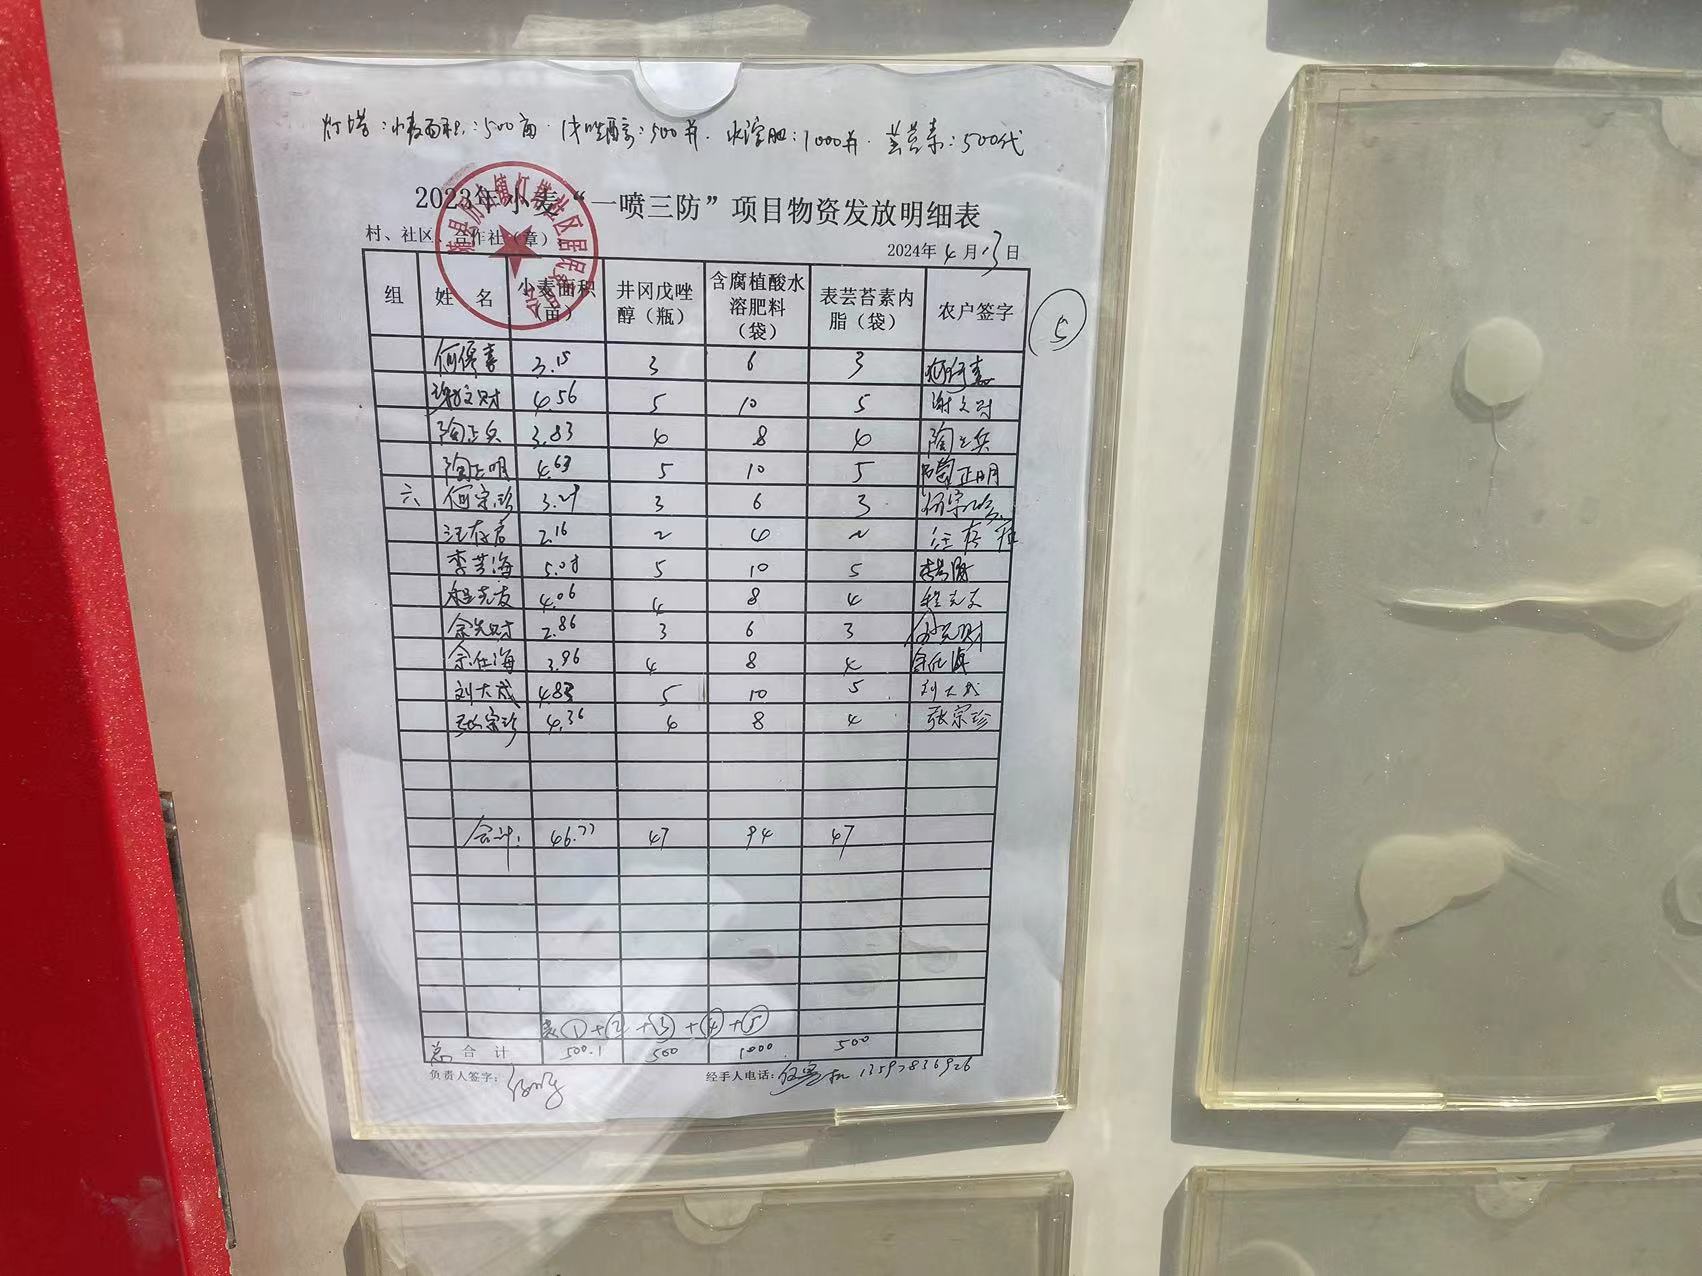 灯塔：小麦面积：500亩．戊唑醇：500并．水溶肥：1000并．芸苔素：500代
2023年小麦“一喷三防”项目物资发放明细表
村、社区、合作社（章） 2024年4月13日
组 姓 名 小麦面积（亩） 井冈戊唑醇（瓶） 含腐植酸水溶肥料（袋） 表芸苔素内脂（袋） 农户签字
⑤
何保喜 3.15 3 6 3
谢文财 4.56 5 10 5 谢文财
陶正兵 3.83 4 8 4 陶正兵
陶正明 4.63 5 10 5 陶正明
六 何宗珍 3.29 3 6 3 何宗珍
汪存 2.16 2 4 2 汪存
李芳海 5.08 5 10 5
程克友 4.06 4 8 4 程克友
余先财 2.86 3 6 3 余先财
余任海 3.96 4 8 4 余任海
刘大成 4.83 5 10 5 刘大成
张宗珍 4.36 4 8 4 张宗珍
合计： 46.77 47 94 47
表①+②+③+④+⑤
总合计 500.1 500 1000 500
负责人签字：
经手人电话： 13597836926